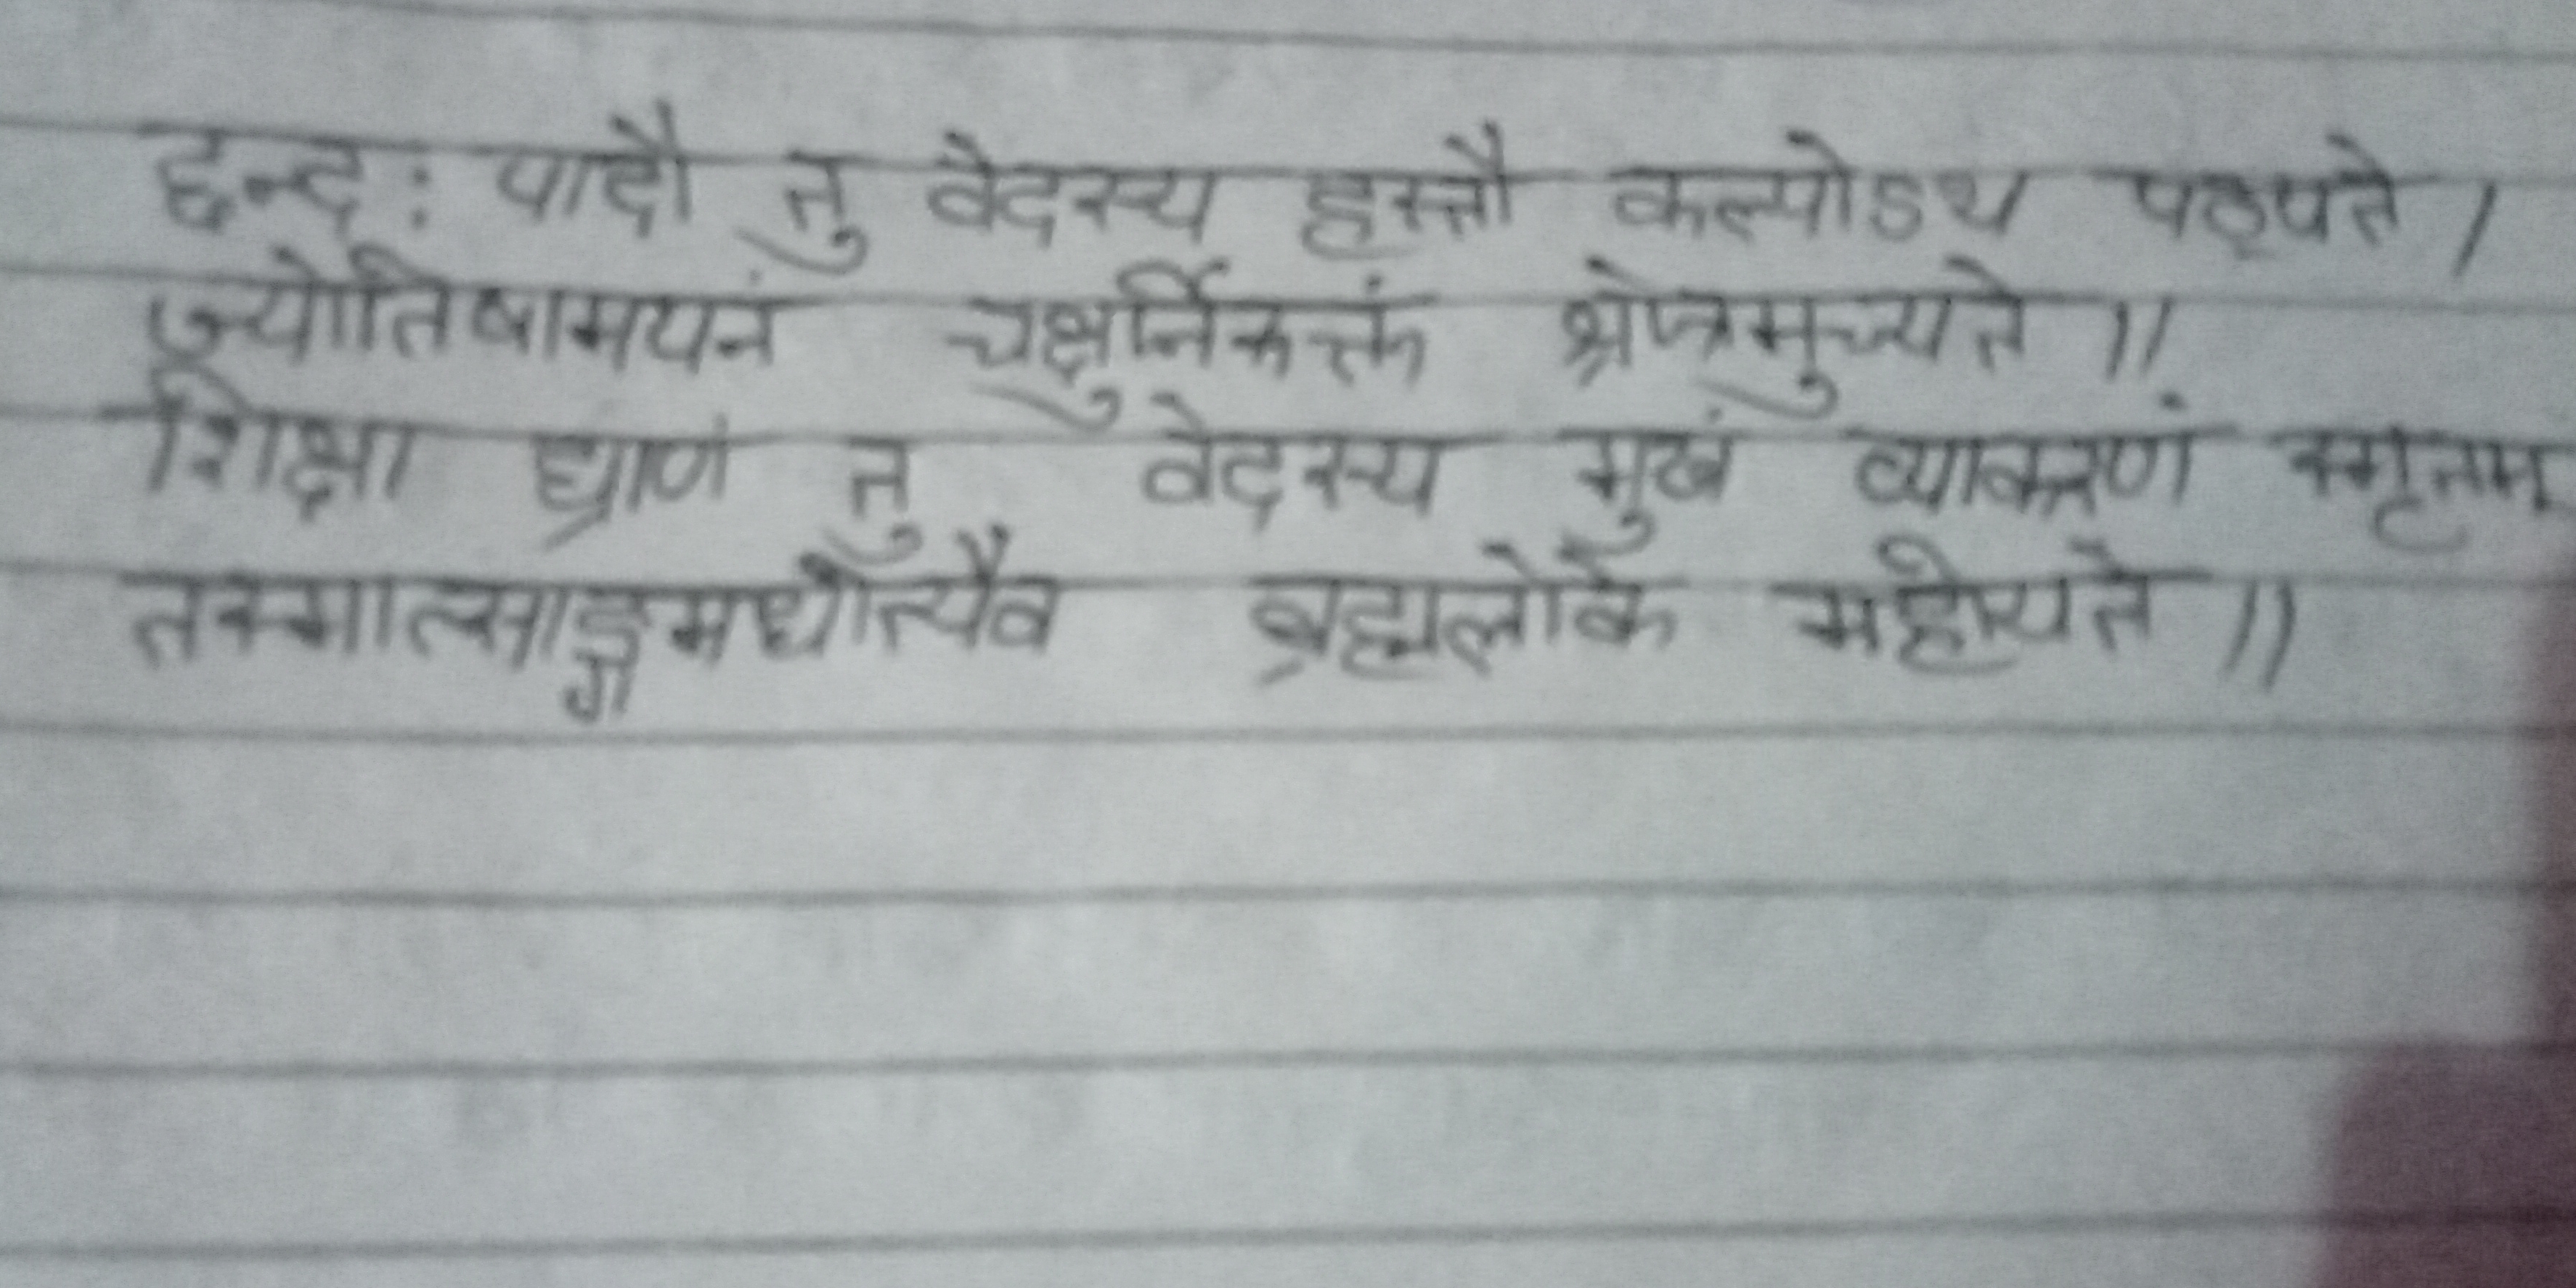 छन्द: पादौ तु वेदस्य हस्तौ कल्पोऽथ पठ्यते ।
ज्योतिषामयनं चक्षुर्निरुक्तं श्रोत्रमुच्यते ॥
शिक्षा घ्राणं तु वेदस्य मुखं व्याकरणं स्मृतम
तस्मात्साङ्गमधीत्यैव ब्रह्मलोके महीयते ॥